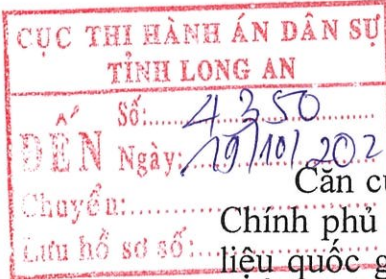 CỤC THI HÀNH ÁN DÂN SỰ
TỈNH LONG AN
ĐẾN
Số:........4350
Ngày:...19/10/202
Chuyển:.............
Lưu hồ sơ số:.............
Căn cứ
Chính phủ
liệu quốc g